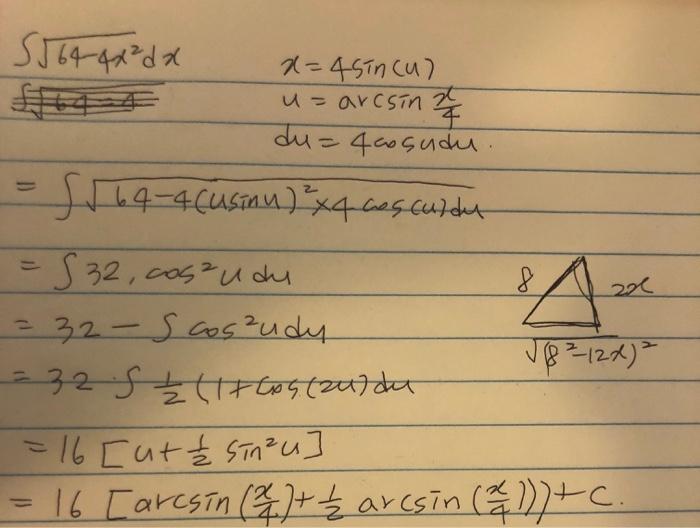 ∫√64-4x² dx
x = 4 sin(u)
u = arcsin x/4
du = 4 cos u du.
= ∫√64-4(usinu)² × 4 cos(u) du
= ∫ 32, cos² u du
8
2x
√(8²-12x)²
= 32 - ∫ cos² u du
= 32 · ∫ 1/2 (1 + cos(2u) du
= 16 [u + 1/2 sin² u]
= 16 [arcsin (x/4) + 1/2 arcsin (x/4))] + c.